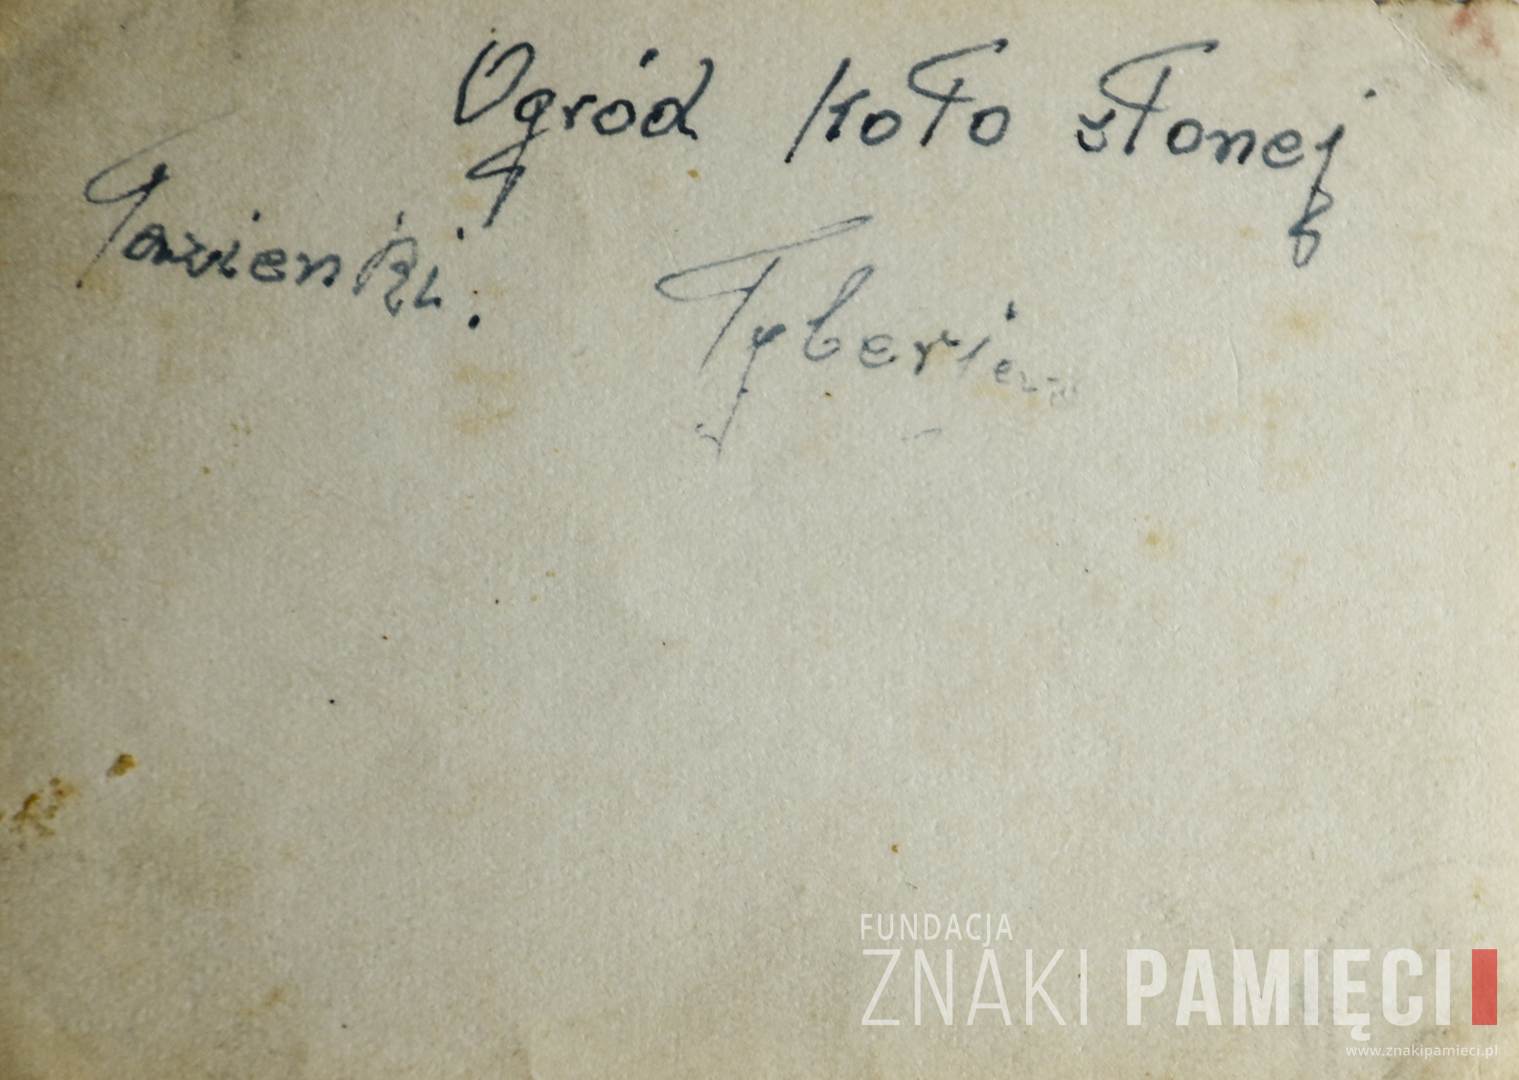 Ogród koło słonej
Łazienki. Tyberiez
FUNDACJA
ZNAKI PAMIĘCI
www.znakipamieci.pl